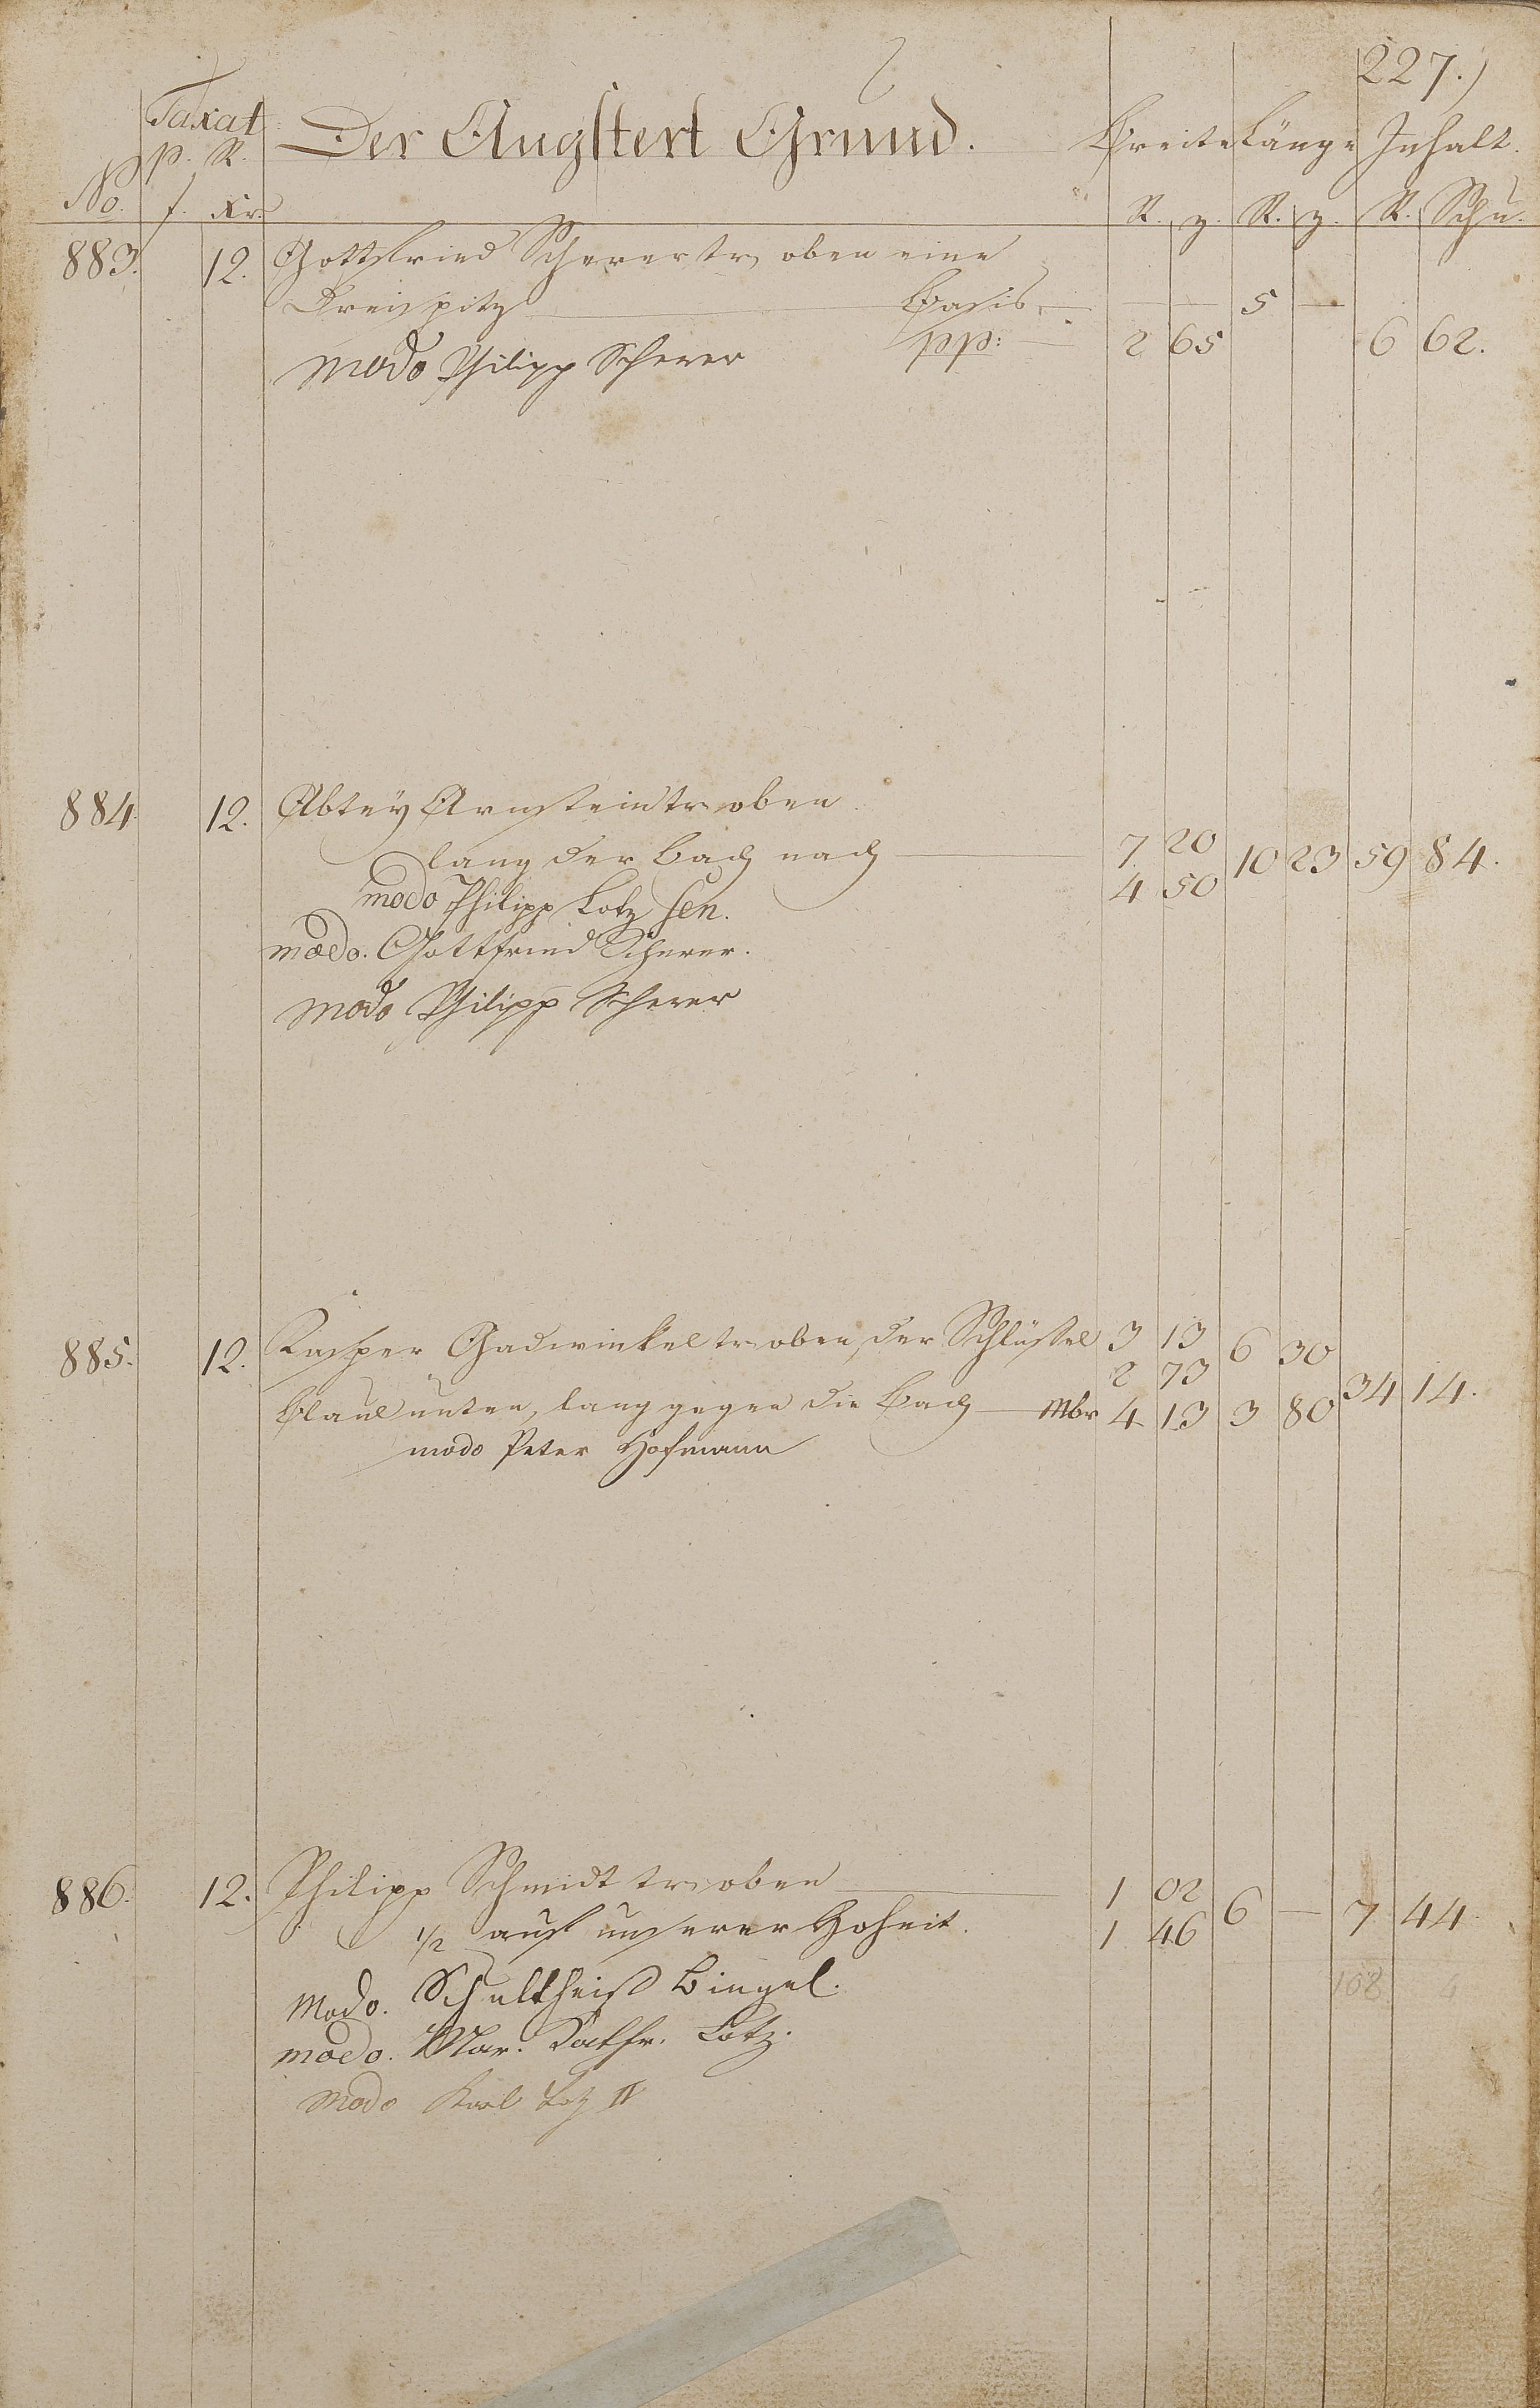 227.)
Taxat
p. R. Der Augstert Grund. Breite Länge Inhalt.
No. f. Xr. R. z. R. z. R. Schu.
883. 12. Gottfried Scherer tr. oben eine
Dreispitz Basis. — — 5 —
pp: 2 65 6 62.
modo Philipp Scherer
884. 12. Abtey Arnstein tr. oben
lang der Bach nach 7. 20 10 23 59 84.
4 50
modo Philipp Lotz sen.
modo. Gottfried Scherer.
modo Philipp Scherer
885. 12. Kasper Gadwinkel tr. oben, der Schlüssel 3 13 6 30
2 73 34 14.
unten, lang gegen die Bach Mbr 4 13 3 80
modo Peter Hofmann
886. 12. Philipp Schmidt tr. oben 1 02 6 — 7 44
1/2 auf unserer Hoheit. 1 46
108 4
modo. Schultheiß Bingel.
modo. Mar. Cathr. Lotz.
modo Karl Lotz II